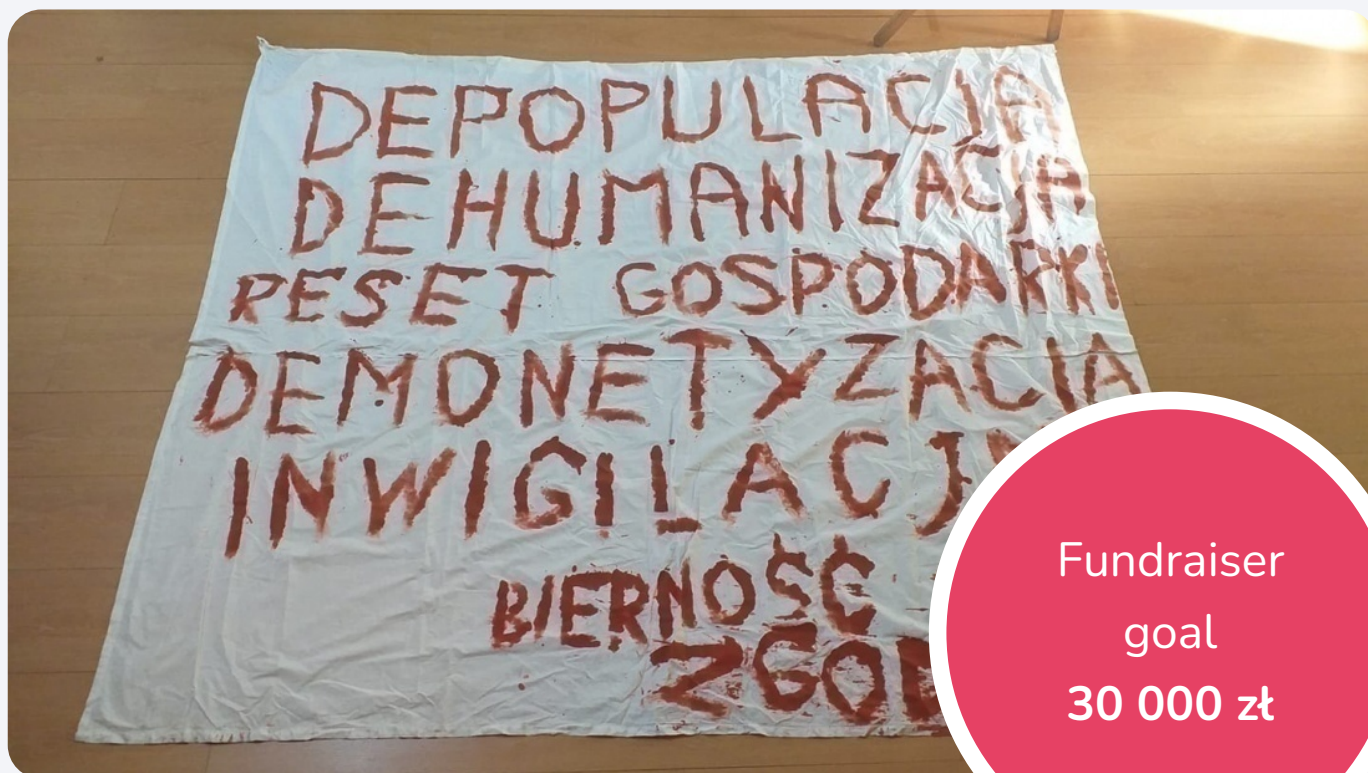 DEPOPULACJA
DEHUMANIZACJA
RESET GOSPODARKI
DEMONETYZACJA
INWIGILACJ
BIERNOŚĆ
Fundraiser
goal
30 000 zł